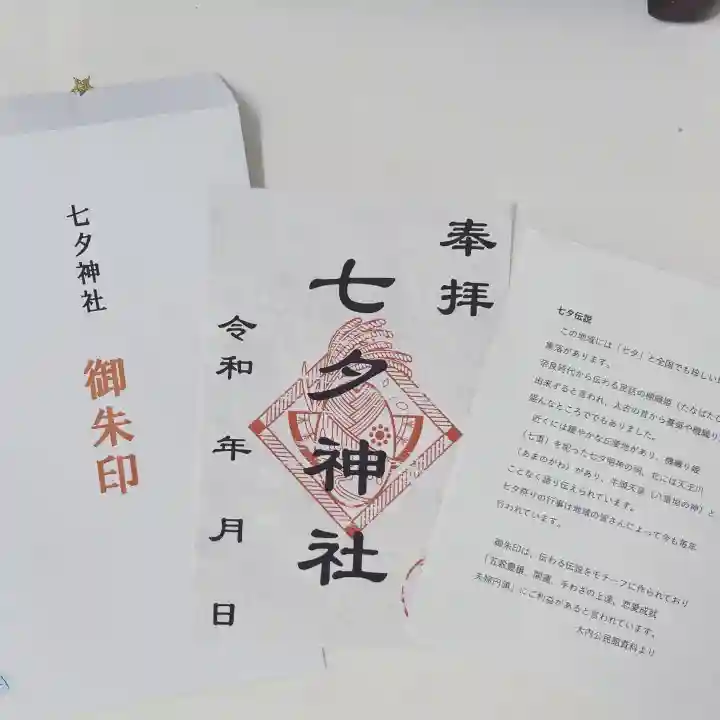 七夕神社
御朱印
奉拝
七夕神社
令和 年 月 日
七夕伝説
この地域には「七夕」と全国でも珍しい
集落があります。
奈良時代から伝わる民話の棚織姫(たなばた
出来すると言われ、太古の昔から養蚕や機織り
盛んなところででもありました。
近くには緩やかな丘陵地があり、機織り姫
(七雲)を祀った七夕明神の祠、北には天王川
(あまのがわ)があり、牛頭天皇(八重垣の神)と
ことなく語り伝えられています。
七夕祭りの行事は地域の皆さんによって今も毎年
行われています。
御朱印は、伝わる伝説をモチーフに作られており
「五穀豊穣、開運、手わざの上達、恋愛成就
夫婦円満」にご利益があると言われています。
大内公民館資料より